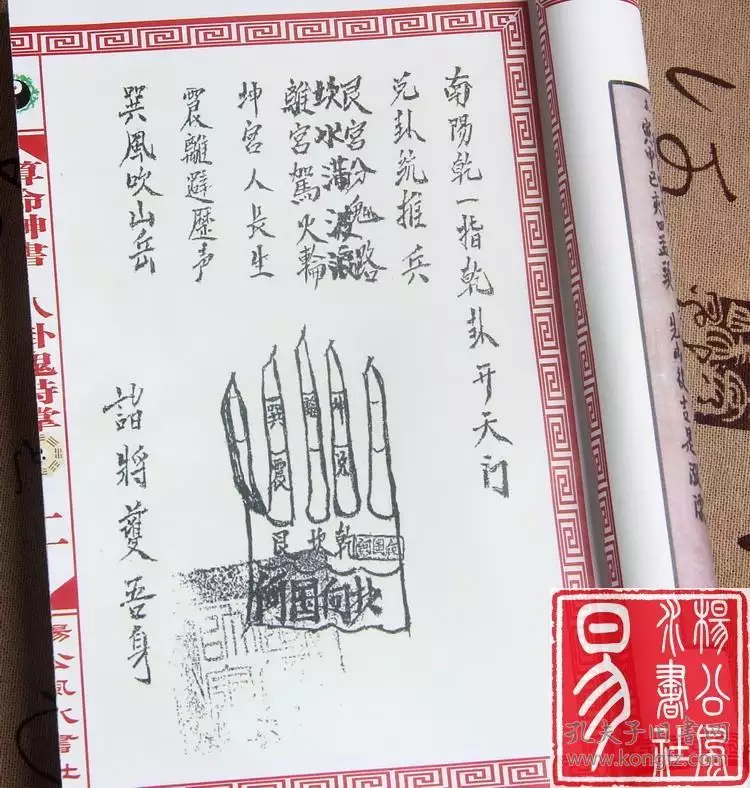 南陽乾一指乾卦开天门
兑卦統推兵
艮宫分鬼路
坎水满波浪
離宮駕火輪
坤宮人長生
震離避歷声
巽風吹山岳
諸將護吾身
巽 離 坤
震 兑
艮 坎 乾
何国向北
算命神書 八卦鬼诗掌
楊公風水書社
易
楊公風水書社
孔夫子旧書网
www.kongfz.com